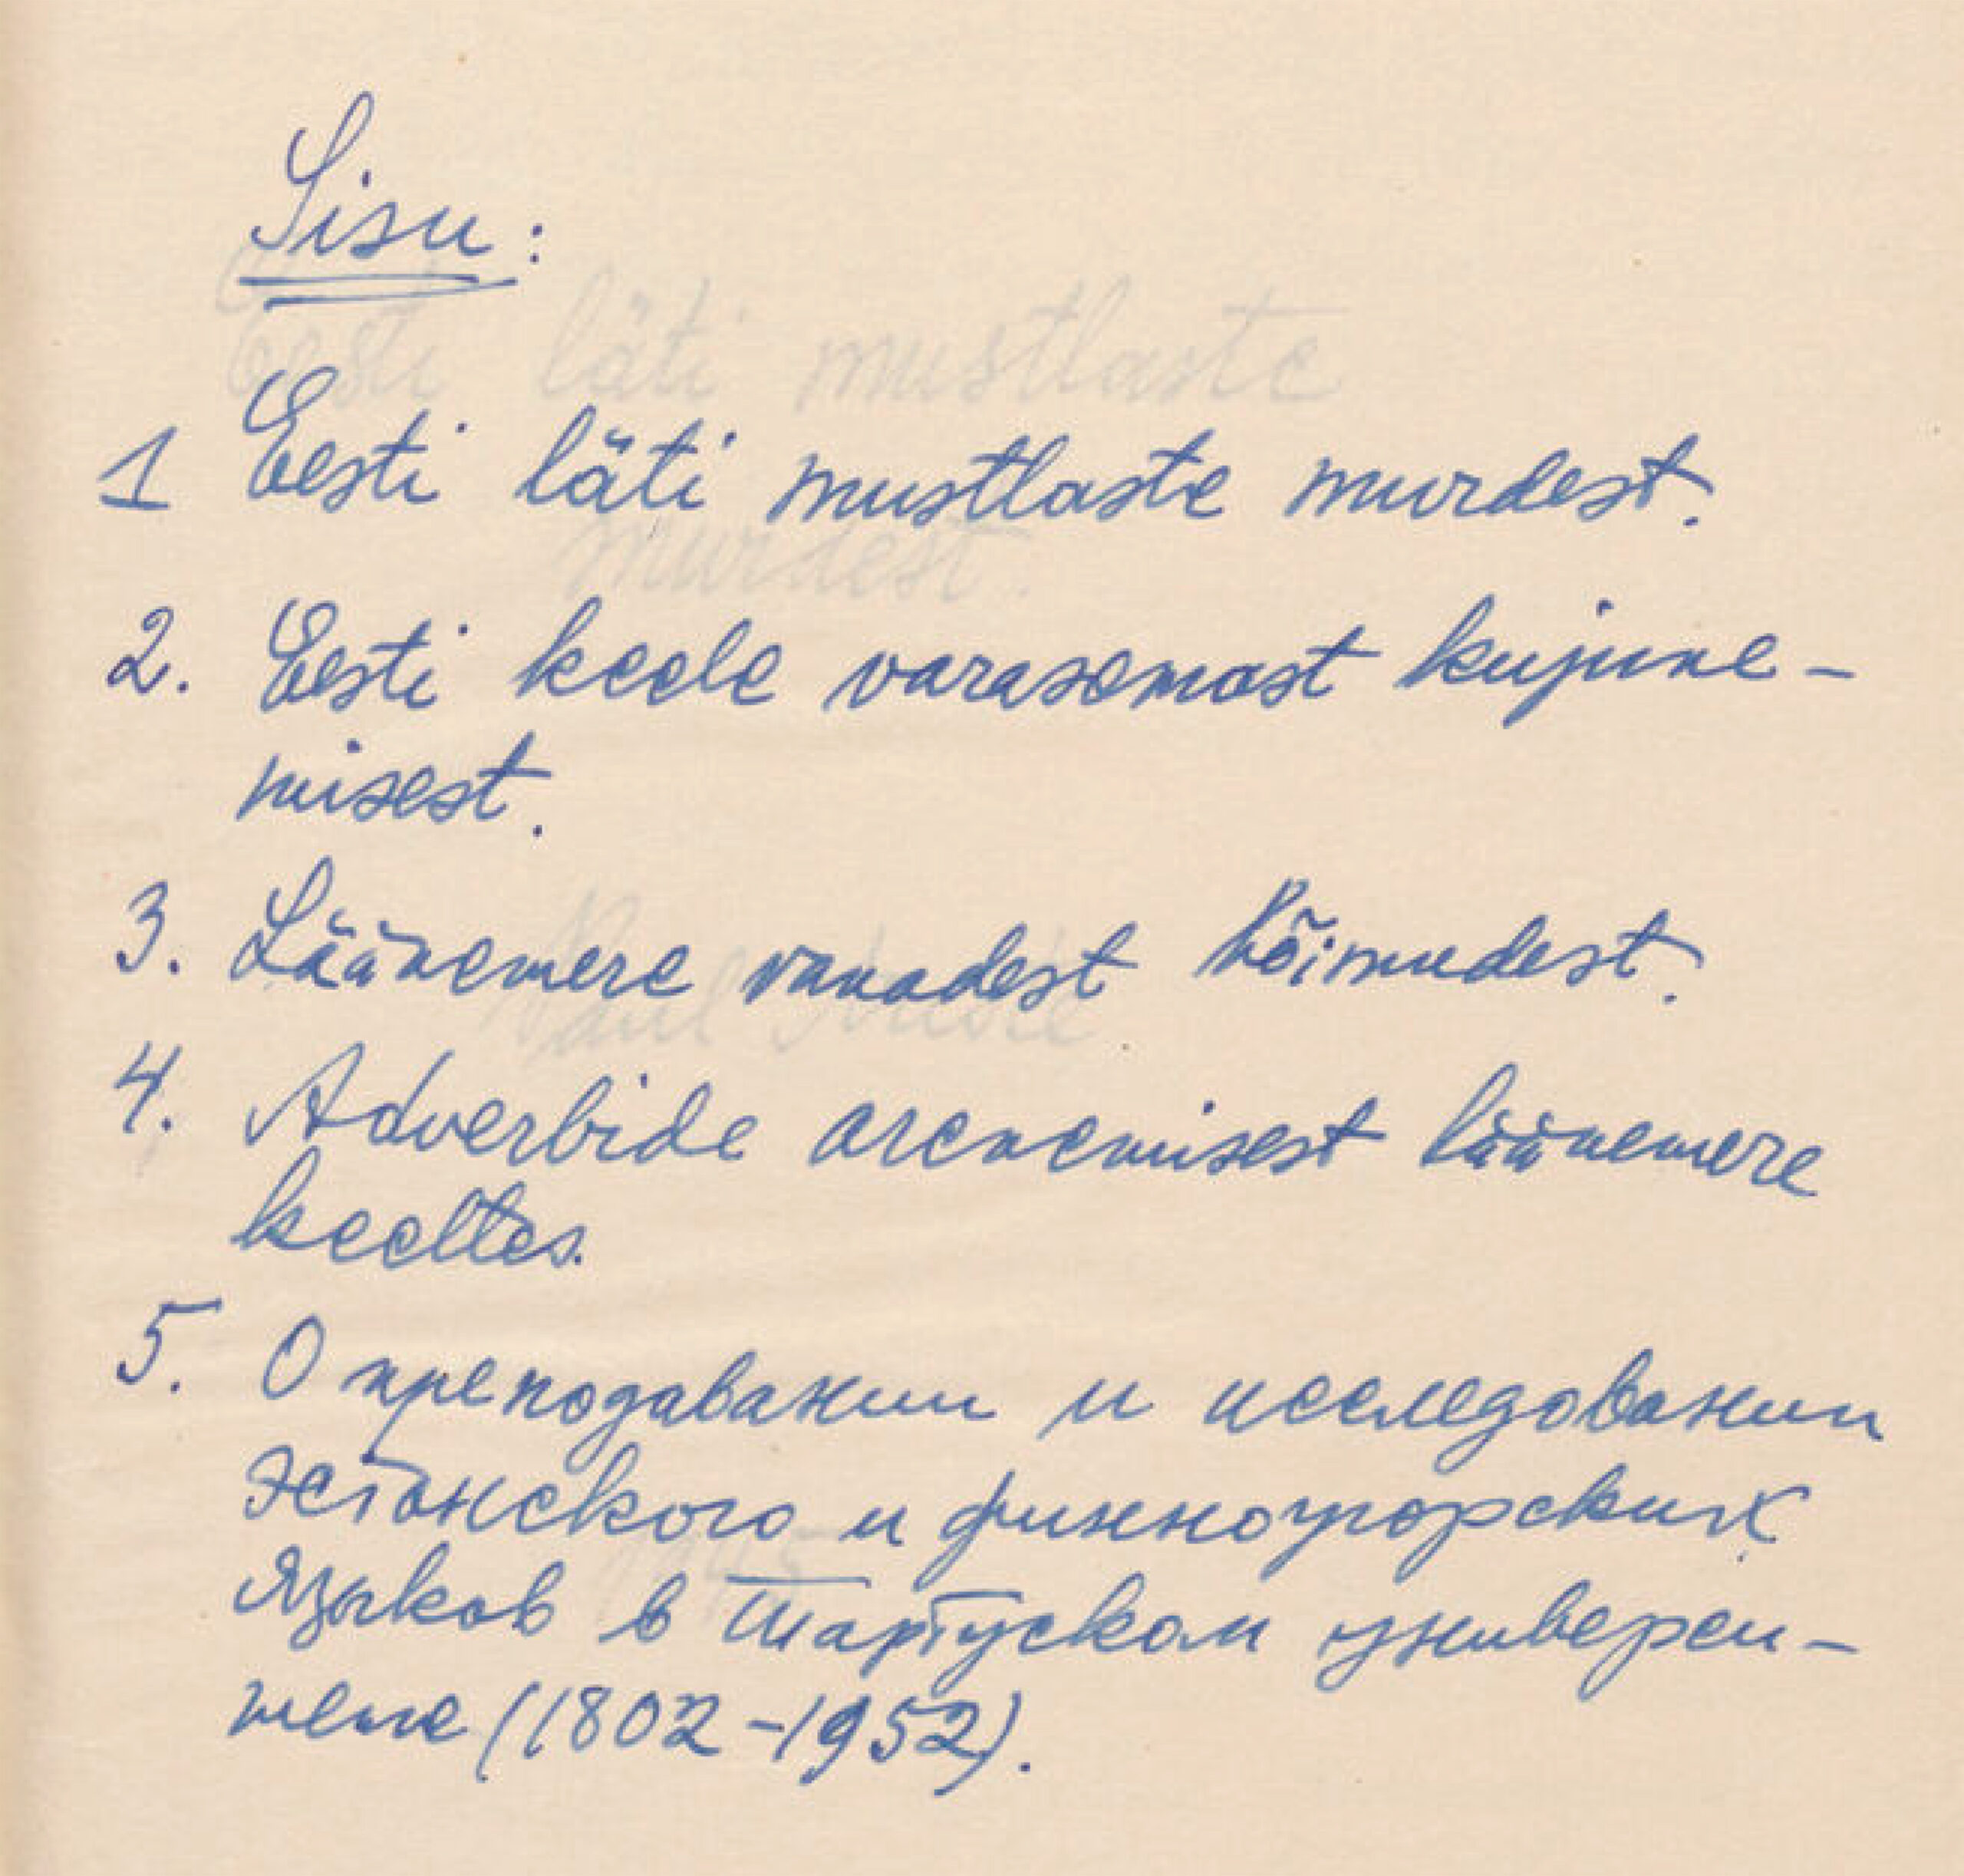 Sisu:
1 Eesti läti mustlaste murdest.
2. Eesti keele varasemast kujune-
misest.
3. Läänemere vanadest hõimudest.
4. Adverbide arenemisest läänemere
keeltes.
5. О преподавании и исследовании
эстонского и финноугорских
языков в Тартуском универси-
тете (1802-1952).